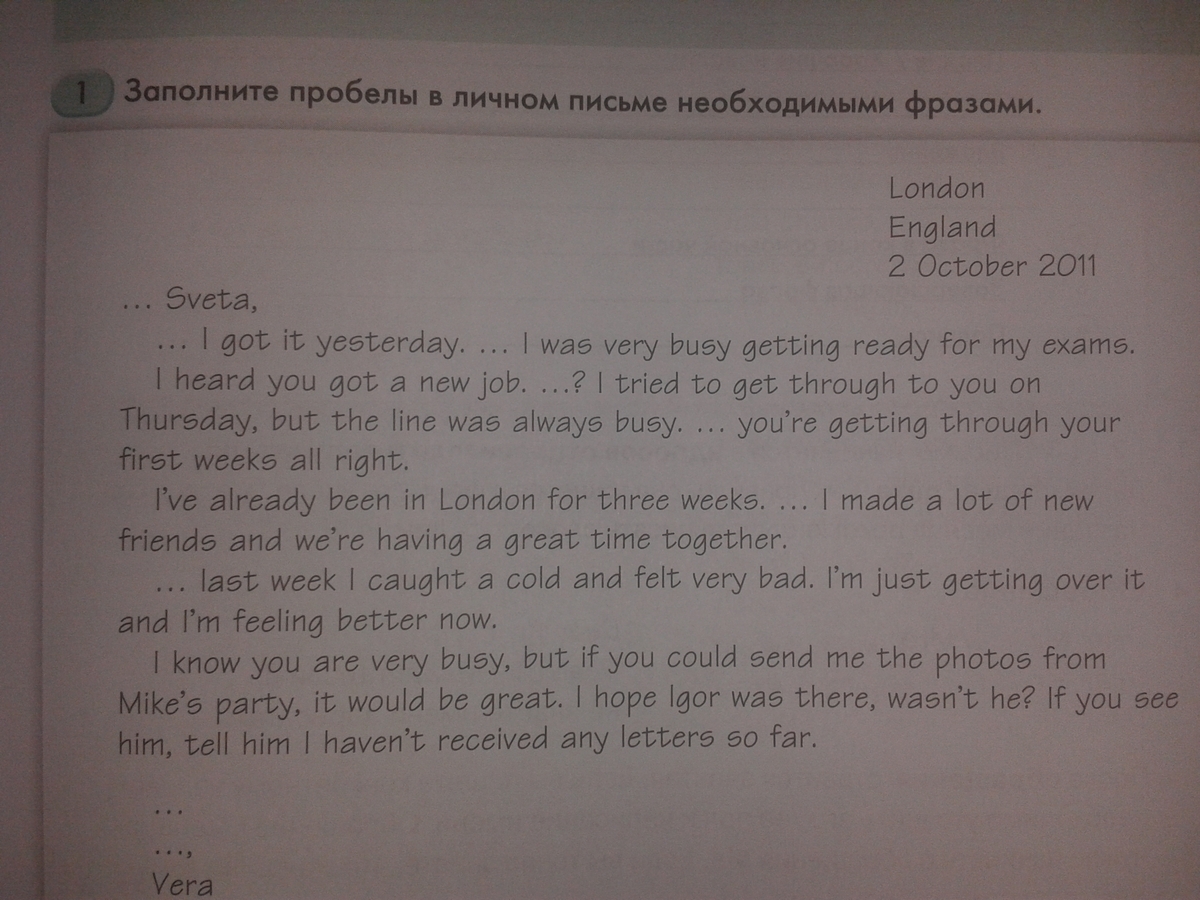 1 Заполните пробелы в личном письме необходимыми фразами.
London
England
2 October 2011
... Sveta,
... I got it yesterday. ... I was very busy getting ready for my exams.
I heard you got a new job. ...? I tried to get through to you on
Thursday, but the line was always busy. ... you're getting through your
first weeks all right.
I've already been in London for three weeks. ... I made a lot of new
friends and we're having a great time together.
... last week I caught a cold and felt very bad. I'm just getting over it
and I'm feeling better now.
I know you are very busy, but if you could send me the photos from
Mike's party, it would be great. I hope Igor was there, wasn't he? If you see
him, tell him I haven't received any letters so far.
...
...,
Vera